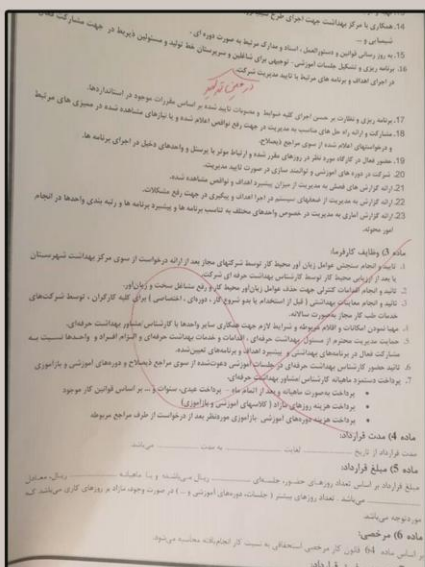 14. همکاری با مرکز بهداشت جهت اجرای طرح
شیمیایی و ...
15. به روز رسانی قوانین و دستورالعمل ، اسناد و مدارک مرتبط به صورت دوره ای .
16. برنامه ریزی و تشکیل جلسات آموزشی - توجیهی برای شاغلین و سرپرستان خط تولید و مسئولین ذیربط در جهت مشارکت
در اجرای اهداف و برنامه های مرتبط با تایید مدیریت شرکت.
17. برنامه ریزی و نظارت بر حسن اجرای کلیه ضوابط و مصوبات تایید شده بر اساس مقررات موجود در استانداردها.
18. مشارکت و ارائه راه حل های مناسب به مدیریت در جهت رفع نواقص اعلام شده و یا نیازهای مشاهده شده در ممیزی های مرتبط
و درخواستهای اعلام شده از سوی مراجع ذیصلاح.
19. حضور فعال در کارگاه مورد نظر در روزهای مقرر شده و ارتباط موثر با پرسنل و واحدهای دخیل در اجرای برنامه ها.
20. شرکت در دوره های آموزشی و توانمند سازی در صورت تایید مدیریت.
21. ارائه گزارش های فصلی به مدیریت از میزان پیشبرد اهداف و نواقص مشاهده شده.
22. ارائه گزارش به مدیریت از ضعفهای سیستم در اجرا اهداف و پیگیری در جهت رفع مشکلات.
23. ارائه گزارش آماری به مدیریت در خصوص واحدهای مختلف به تناسب برنامه ها و پیشبرد برنامه ها و رتبه بندی واحدها در انجام
امور محوله.
ماده 3) وظایف کارفرما:
1. تایید و انجام سنجش عوامل زیان اور محیط کار توسط شرکتهای مجاز بعد از ارائه درخواست از سوی مرکز بهداشت شهرستان
یا بعد از ارزیابی محیط کار توسط کارشناس بهداشت حرفه ای شرکت.
2. تائید و انجام اقدامات کنترلی جهت حذف عوامل زیان‌اور محیط کار و رفع مشاغل سخت و زیان‌اور.
3. تائید و انجام معاینات بهداشتی ( قبل از استخدام یا بدو شروع کار ، دوره‌ای ، اختصاصی ) برای کلیه کارگران ، توسط شرکت‌های
خدمات طب کار مجاز به‌صورت سالانه.
4. مهیا نمودن امکانات و اقلام مربوطه و شرایط لازم جهت همکاری سایر واحدها با کارشناس مشاور بهداشت حرفه‌ای.
5. حمایت مدیریت محترم از مسئول بهداشت حرفه‌ای ، اقدامات و خدمات بهداشت حرفه‌ای و الزام افراد و واحدها نسبت به
مشارکت فعال در برنامه‌های بهداشتی و پیشبرد اهداف و برنامه‌های تعیین‌شده.
6. تائید حضور کارشناس بهداشت حرفه‌ای در جلسات آموزشی دعوت‌شده از سوی مراجع ذیصلاح و دوره‌های آموزشی و بازآموزی
7. پرداخت دستمزد ماهیانه کارشناس مشاور بهداشت حرفه‌ای.
• پرداخت به‌صورت ماهیانه و بعد از اتمام ماه - پرداخت عیدی، سنوات و ... بر اساس قوانین کار موجود
• پرداخت هزینه روزهای مازاد ( کلاسهای آموزشی و بازآموزی)
• پرداخت هزینه دوره‌های آموزشی بازآموزی موردنظر بعد از درخواست از طرف مراجع مربوطه
ماده 4) مدت قرارداد:
مدت قرارداد از تاریخ ... لغایت ... به مدت ... می‌باشد.
ماده 5) مبلغ قرارداد:
مبلغ قرارداد بر اساس تعداد روزهای حضور، جلسه‌ای ... ریال می‌باشد و یا ماهیانه ... ریال، معادل
... می‌باشد . تعداد روزهای بیشتر ( جلسات، دوره‌های آموزشی و .. ) در صورت وجود، مازاد بر روزهای کاری می‌باشد که
موردتوجه می‌باشد.
ماده 6) مرخصی:
بر اساس ماده 64 قانون کار مرخصی استحقاقی به نسبت کار انجام‌یافته محاسبه می‌شود.